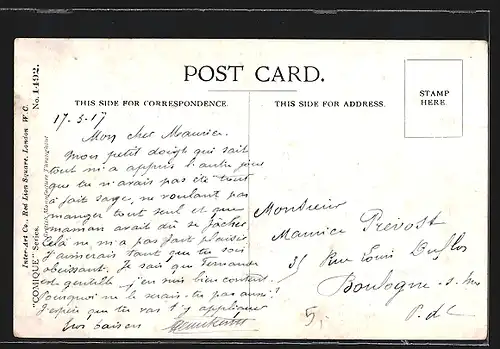 POST CARD.
THIS SIDE FOR CORRESPONDENCE.
THIS SIDE FOR ADDRESS.
STAMP
HERE.
17-5-17
Mon cher Maurice.
Mon petit doigt qui sait
tout m'a appris l'autre jour
que tu n'avais pas été tout
à fait sage, ne voulant pas
manger tout seul et que
maman avait dû se fâcher
Celà ne m'a pas fait plaisir
J'aimerais tant que tu sois
obeissant. Je sais que Fernande
est gentille j'en suis bien content.
Pourquoi ne le serais-tu pas aussi?
J'espère que tu vas t'y appliquer
baisers
Monsieur
Maurice Prévost
Rue Louis Duflos
Boulogne-s-Mer
P. d C
5,
Inter-Art Co., Red Lion Square, London W.C.
"COMIQUE" Series. No. 1492.
British Manufacture Throughout